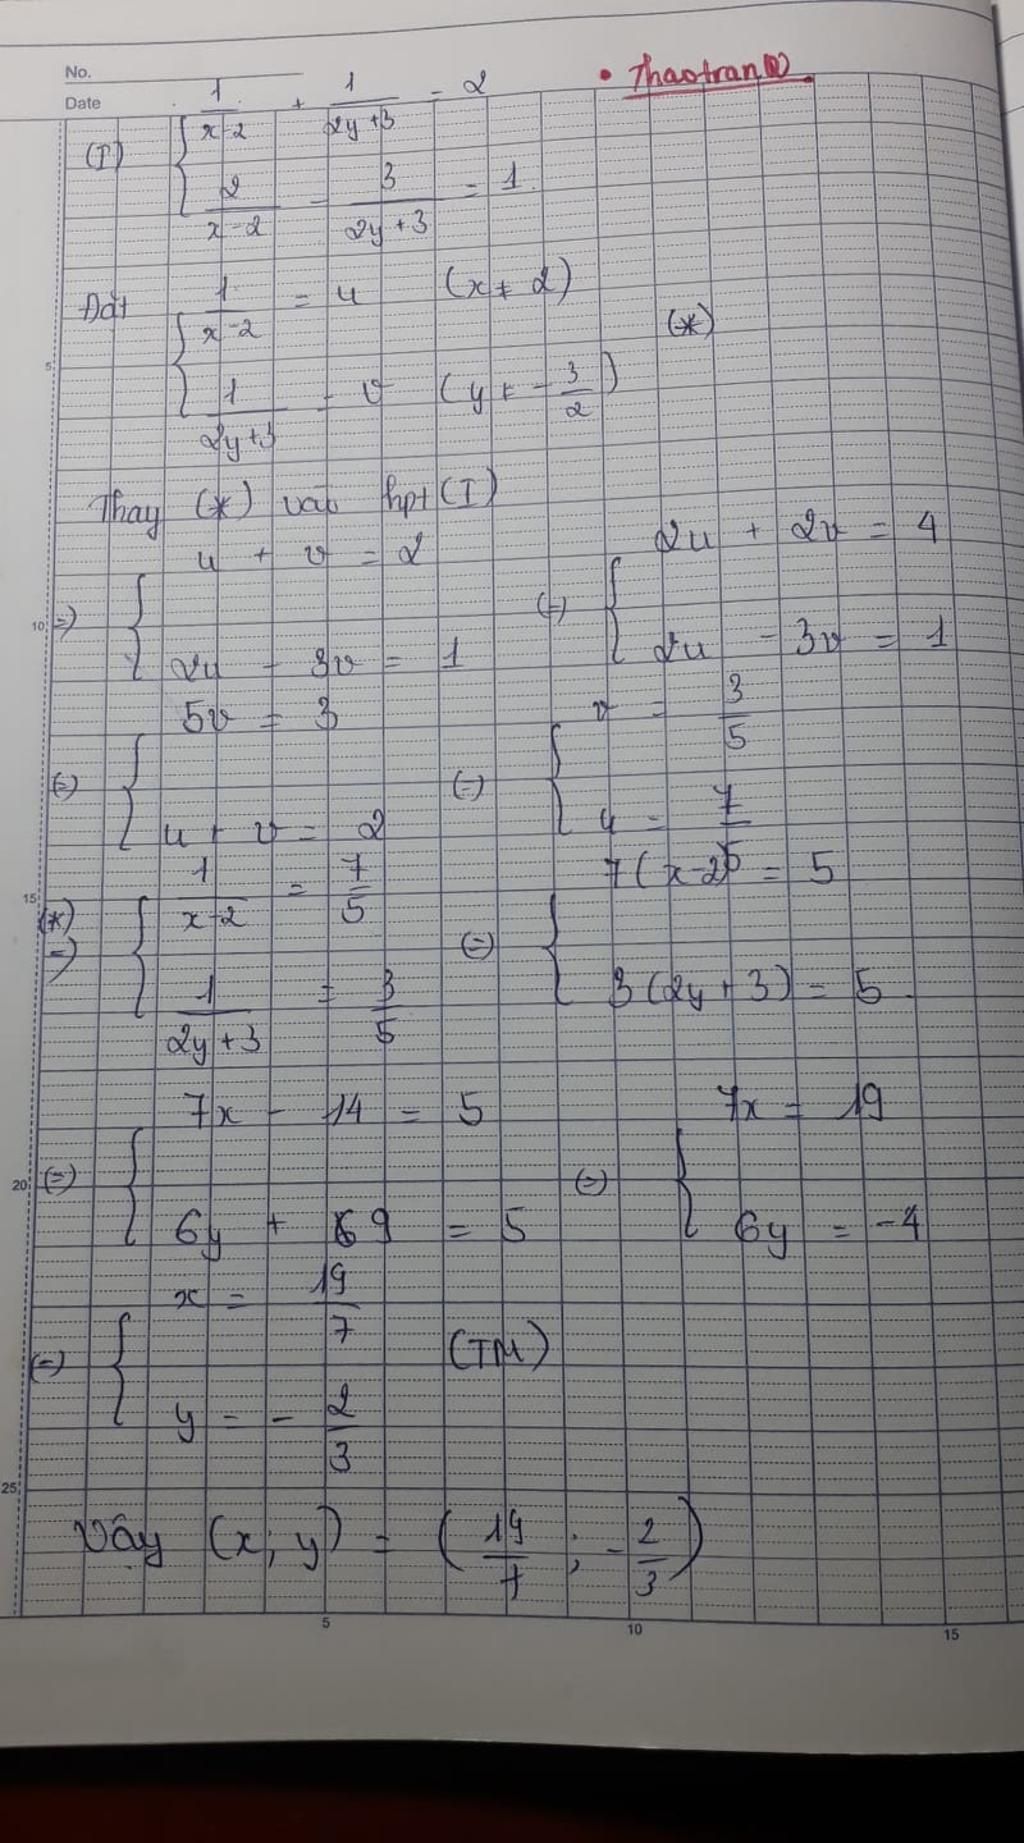 No.
Date
• Thaotran
(I) { 1/(x-2) + 1/(2y+3) = 2
2/(x-2) - 3/(2y+3) = 1
Đặt { 1/(x-2) = u (x ≠ 2)
1/(2y+3) = v (y ≠ -3/2) (*)
Thay (*) vào hpt (I)
=> { u + v = 2
2u - 3v = 1
(=) { 2u + 2v = 4
2u - 3v = 1
(=) { 5v = 3
u + v = 2
(=) { v = 3/5
u = 7/5
(*) => { 1/(x-2) = 7/5
1/(2y+3) = 3/5
(=) { 7(x-2) = 5
3(2y+3) = 5
(=) { 7x - 14 = 5
6y + 9 = 5
(=) { 7x = 19
6y = -4
(=) { x = 19/7
y = - 2/3 (TM)
Vậy (x; y) = (19/7; -2/3)
5
10
15
20
25
5
10
15